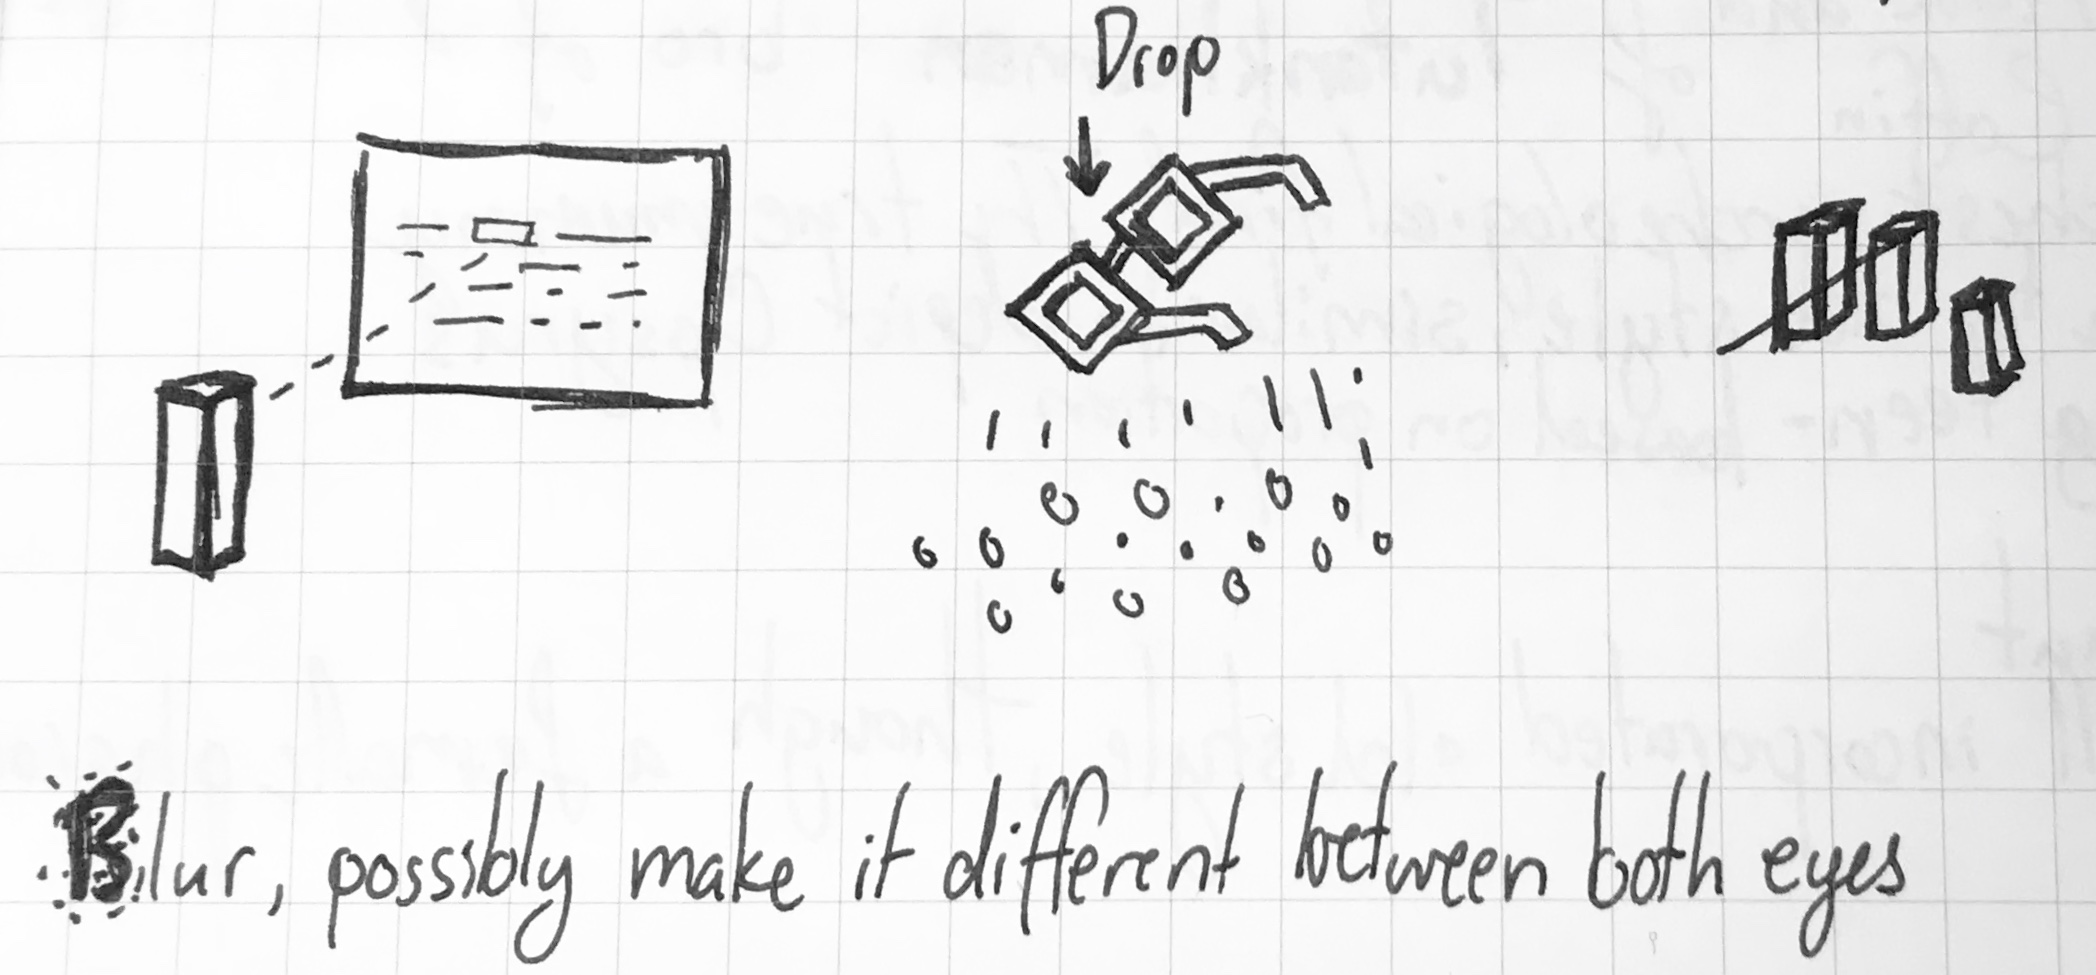 Drop
Blur, posssibly make it different between both eyes